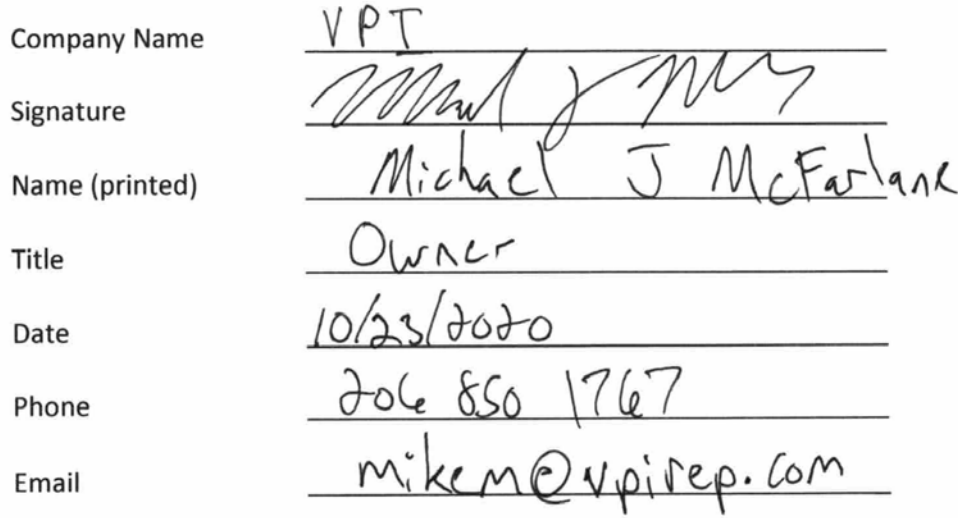 Company Name VPI
Signature
Name (printed) Michael J McFarlane
Title Owner
Date 10/23/2020
Phone 206 850 1767
Email mikem@vpirep.com